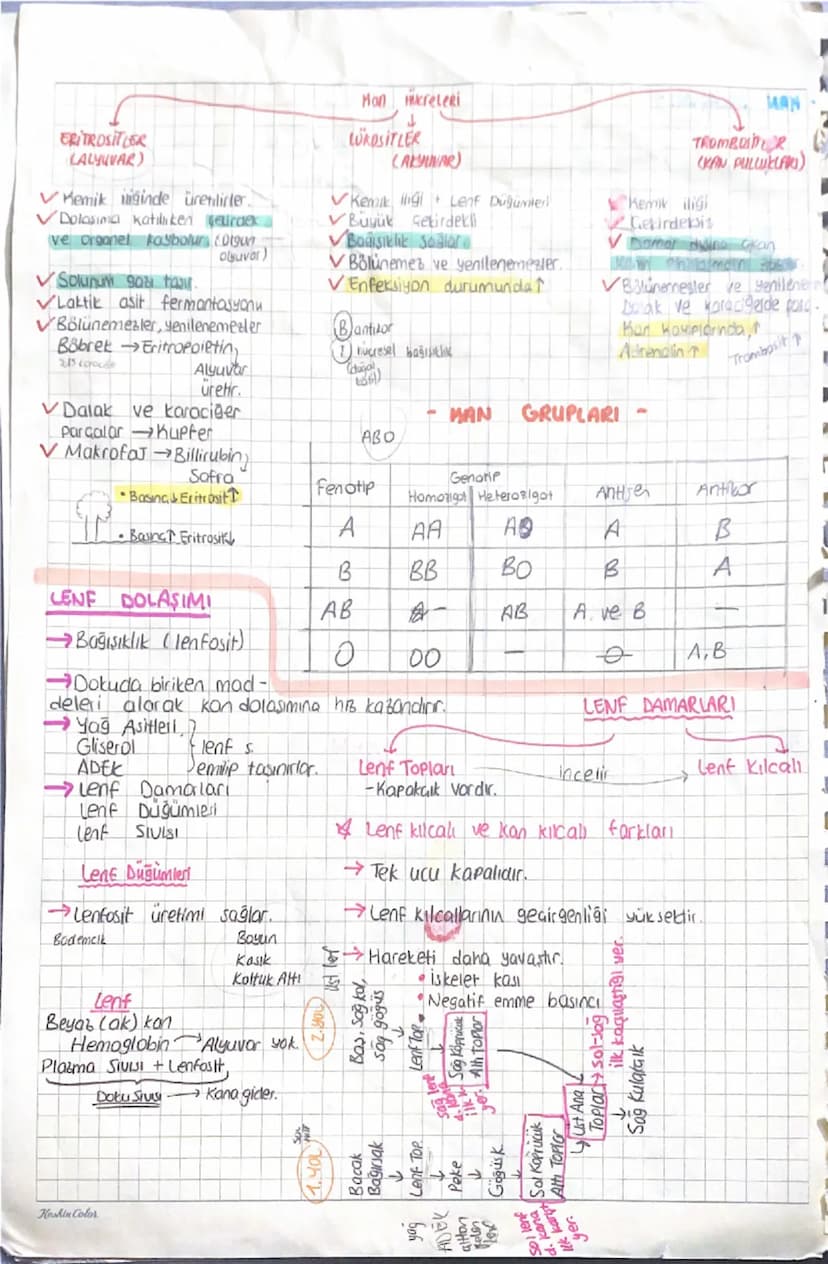 KAN
Kan Hücreleri
ERİTROSİTLER
(ALYUVAR)
✓ Kemik iliğinde üretilirler.
✓ Dolaşıma katılırken çekirdek
ve organel kaybolur. (Olgun
alyuvar)
✓ Solunum gazı taşır.
✓ Laktik asit fermantasyonu
✓ Bölünemezler, yenilenemezler
Böbrek → Eritropoietin
Alyuvar
üretir.
✓ Dalak ve karaciğer
parçalar → Kupfer
✓ Makrofaj → Billirubin
Safra
• Basınç↓ Eritrosit↑
• Basınç↑ Eritrosit↓
LÖKOSİTLER
(AKYUVAR)
✓ Kemik iliği + Lenf Düğümleri
✓ Büyük Çekirdekli
✓ Bağışıklık sağlar.
✓ Bölünemez ve yenilenemezler.
✓ Enfeksiyon durumunda ↑
(B) antikor
(T) hücresel bağışıklık
TROMBOSİTLER
(KAN PULCUKLARI)
✓ Kemik iliği
✓ Çekirdeksiz
✓ Damar dışına çıkan
✓ Bölünemezler ve yenilenem
Dalak ve karaciğerde parç.
Kan kayıplarında, ↑
Adrenalin ↑
Trombosit ↑
- KAN GRUPLARI -
ABO
Fenotip Genotip Antijen Antikor
Homozigot Heterozigot
A AA AO A B
B BB BO B A
AB - AB A ve B -
O OO - A,B
LENF DOLAŞIMI
→ Bağışıklık (lenfosit)
→ Dokuda biriken mad-
deleri alarak kan dolaşımına kazandırır.
→ Yağ Asitleri
Gliserol } lenf s.
ADEK emilip taşınırlar.
→ Lenf Damarları
Lenf Düğümleri
Lenf Sıvısı
Lenf Düğümleri
→ Lenfosit üretimi sağlar.
Bademcik Boyun
Kasık
Koltuk Altı
Lenf
Beyaz (ak) kan
Hemoglobin → Alyuvar yok.
Plazma Sıvısı + Lenfosit
Doku Sıvısı → Kana gider.
LENF DAMARLARI
Lenf Topları incelir → Lenf Kılcalı
- Kapakçık vardır.
Lenf kılcalı ve kan kılcalı farkları
→ Tek ucu kapalıdır.
→ Lenf kılcallarının geçirgenliği yüksektir.
→ Hareketi daha yavaştır.
• iskelet kası
• Negatif emme basıncı
2.YOL
Baş, Sağ kol,
sağ göğüs
↓
Lenf Top.
↓
Sağ Köprücük
Altı Toplar
sağ lenf
d. kana
ilk k.
yer.
Üst Ana
Toplar → Sol-sağ
ilk karşılaştığı yer.
↓
Sağ Kulakçık
1.YOL
Bacak
Bağırsak
↓
Lenf Top.
↓
Peke
↓
Göğüs K.
↓
Sol Köprücük
Altı Toplar
yağ
ADEK
sol lenf
d. kana
ilk
yer.
KeskinColor